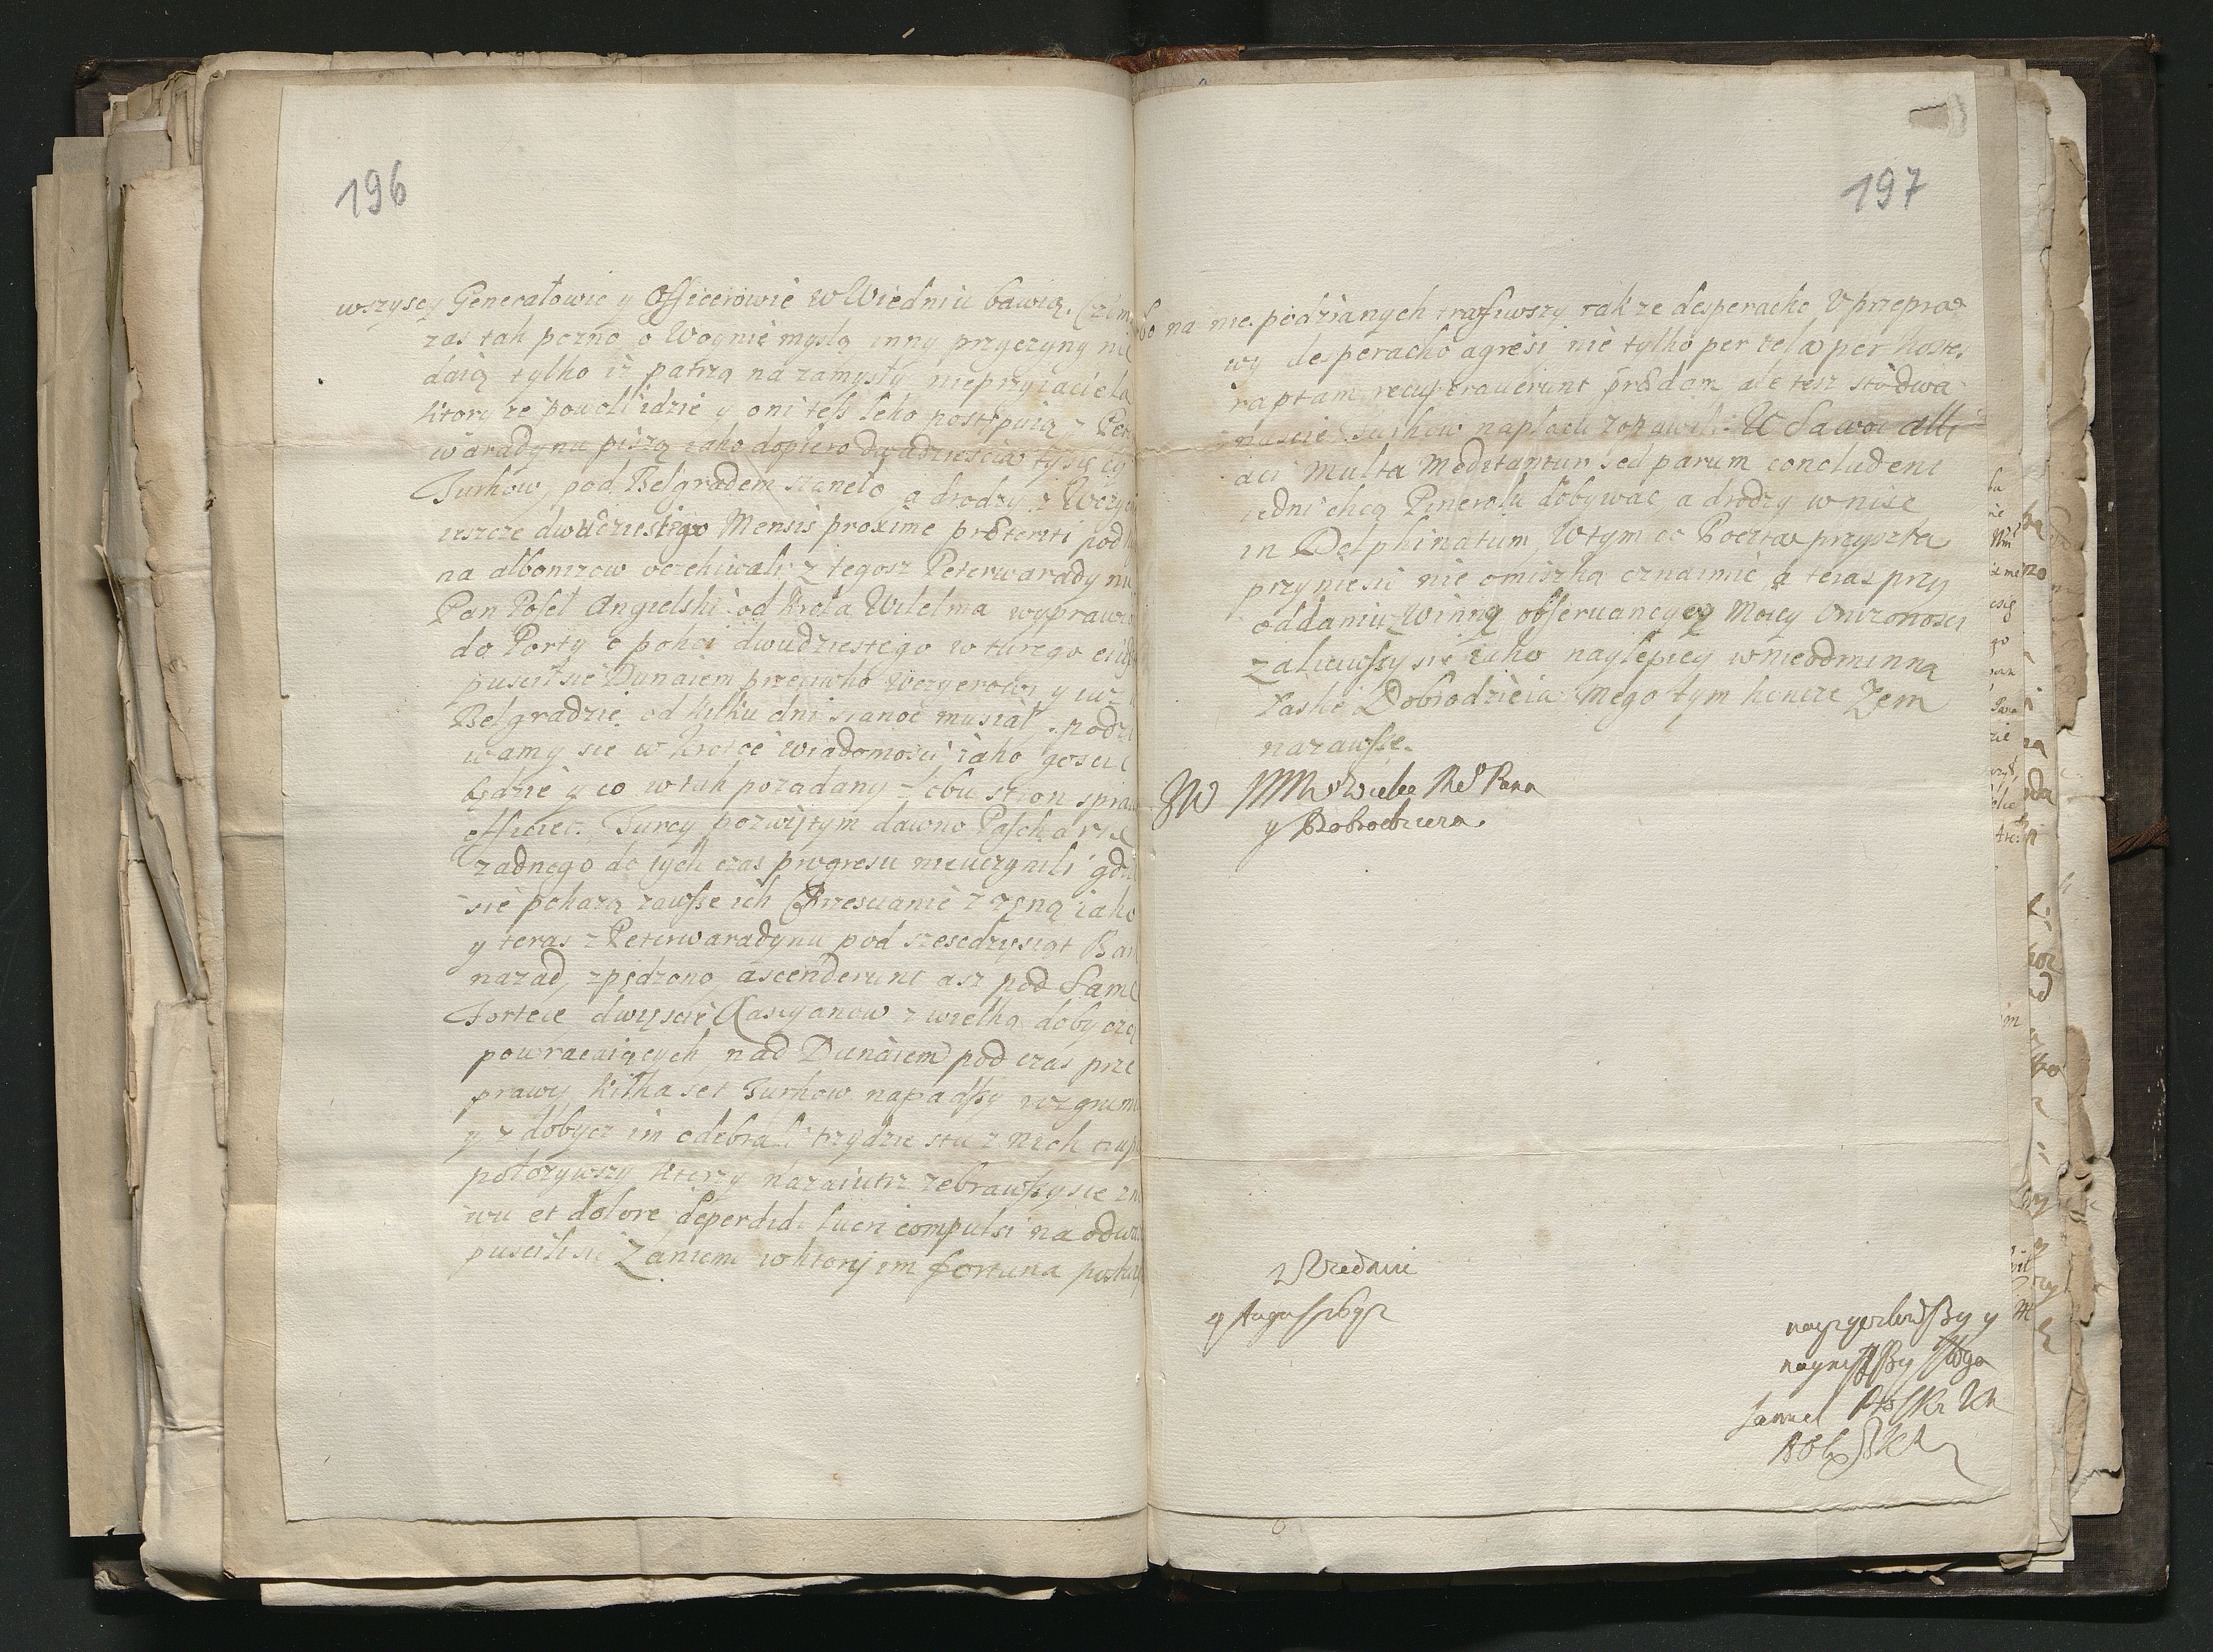 196
wszyscy Generałowie y Officerowie w Wiedniu bawią.
zas tak pozno o Woynie myslą inny przyczyny nie
daią tylko iz patrzą na zamysły nieprzyiaciela
ktory ze powoli idzie y oni tesz leko postępuią z
waradynu piszą iako dopiero dwadziescia tysięcy
Turkow, pod Belgradem staneło a drodzy z
ieszcze dwudziestego Mensis proxime præteriti pod
na albomzow oczekiwali z tegosz Peterwaradynu
Pan Poseł Angielski od Krola Wilelma wyprawio
do Porty o pokoi dwudziestego wturego
puscił sie Dunaiem przeciwko Wezyerowi y iuz
Belgradzie od kilku dni stanoć musiał. podzi
wamy sie w krotce wiadomosci, iako gosci
będzie y co w tak pozadany z obu stron
officiet. Turcy pozwiętym dawno
zadnego do tych czas progresu nieuczynili
sie pokazą zawsze ich Chrescianie z zęną iako
y teras z Peterwaradynu pod szescdzysiąt
nazad, zpędzono, ascenderunt asz pod Same
Fortece dwiescie Rascyanow z wielką dobyczą
powracaiących, nad Dunaiem pod czas prze
prawy kilka set Turkow napadszy
y z dobycz im odebrali trzydziestu z nich
położywszy ktorzy nazaiutrz zebrawszy sie
wu et dolore deperditi lucri compulsi na
puscili sie Zaniemi w ktorj im fortuna
197
bo na nie podzianych trafiwszy takze desperacko V przepra
wy desperacko agresi nie tylko per tela per hostes
raptam recuperauerunt prædam ale tesz sto dwa
nascie Turkow na placu W Sawoi alli
aci Multa Meditantur sed parum concludent
iedni chcą Pinerolu dobywac, a drodzy wnise
in Delphinatum, Wtym co Poczta przyszła
przyniesie nie omiszką oznaimic a teras przy
oddaniu Winnę obseruancyey Moiey Vnizonosci
zaliciwszy sie iako naylepiey w nieodminną
łaske Dobrodzieia Mego tym koncze Zem
nazawsze.
JW MMWielce Me° Pana
y Dobrodzieia.
z Wiednia
9 August
nayzyczliwszy y
naynizszy sługa
Samuel